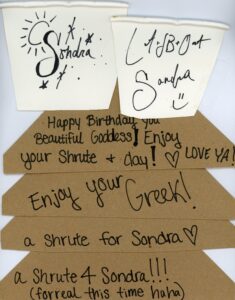 Sondra
Sondra
Happy Birthday You
Beautiful Goddess! Enjoy
your Shrute + day! ♡ LOVE YA!
Enjoy your Greek!
a shrute for Sondra ♡
a Shrute 4 Sondra!!!
(forreal this time huha)